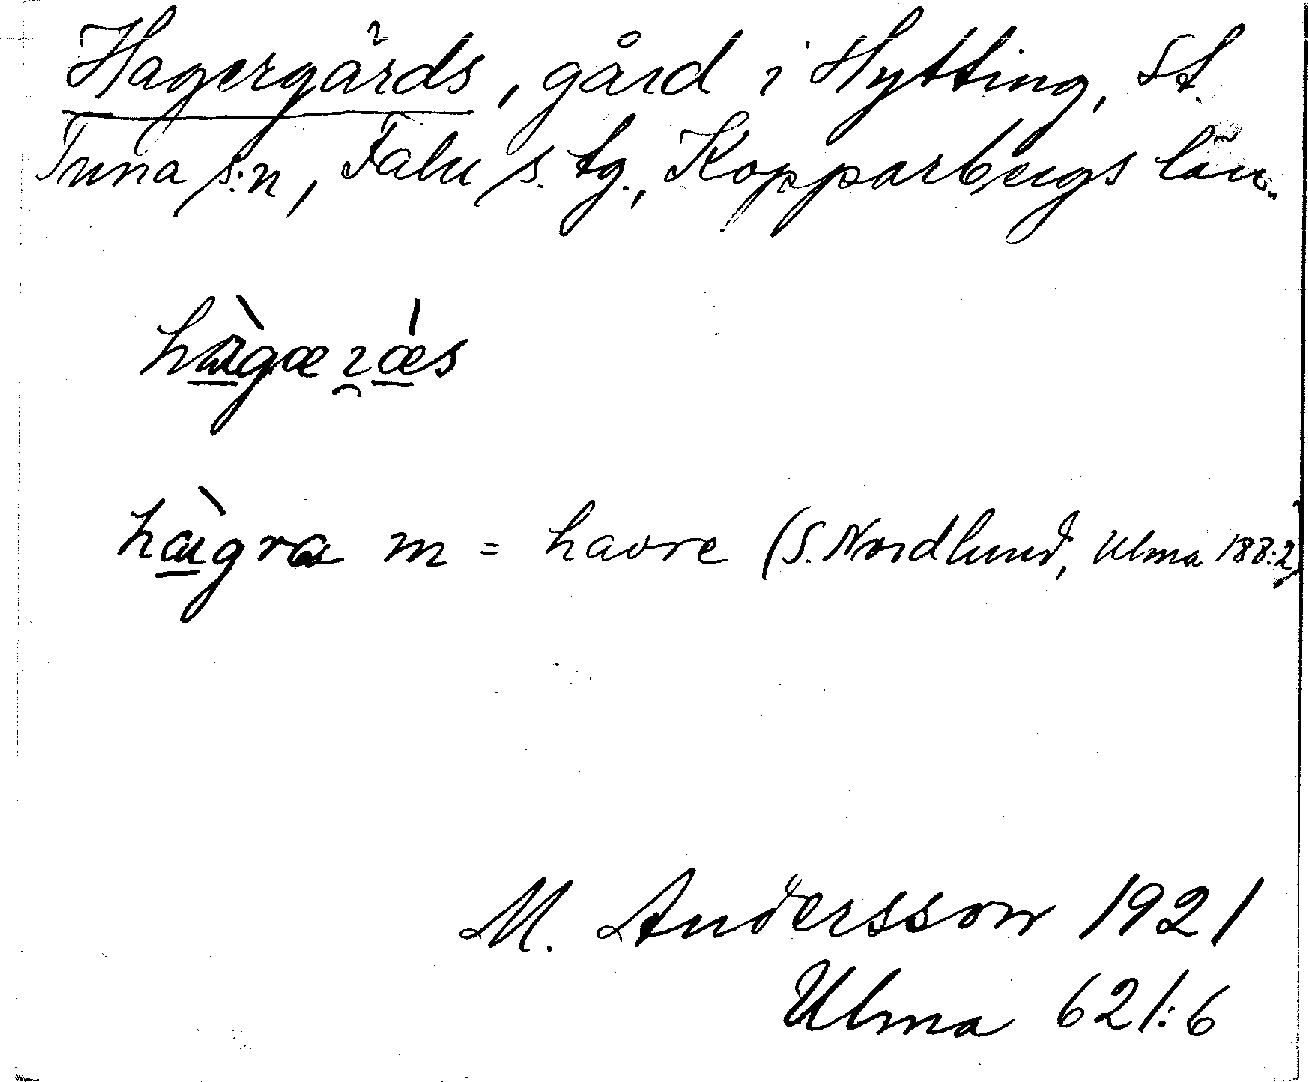 Hagergårds, gård i Hytting, St.
Tuna s:n, Falu s. tg., Kopparbergs län.
hàgæ ɿǽs
hàgra m = havre (S. Nordlund, Ulma 188:2)
M. Andersson 1921
Ulma 621:6